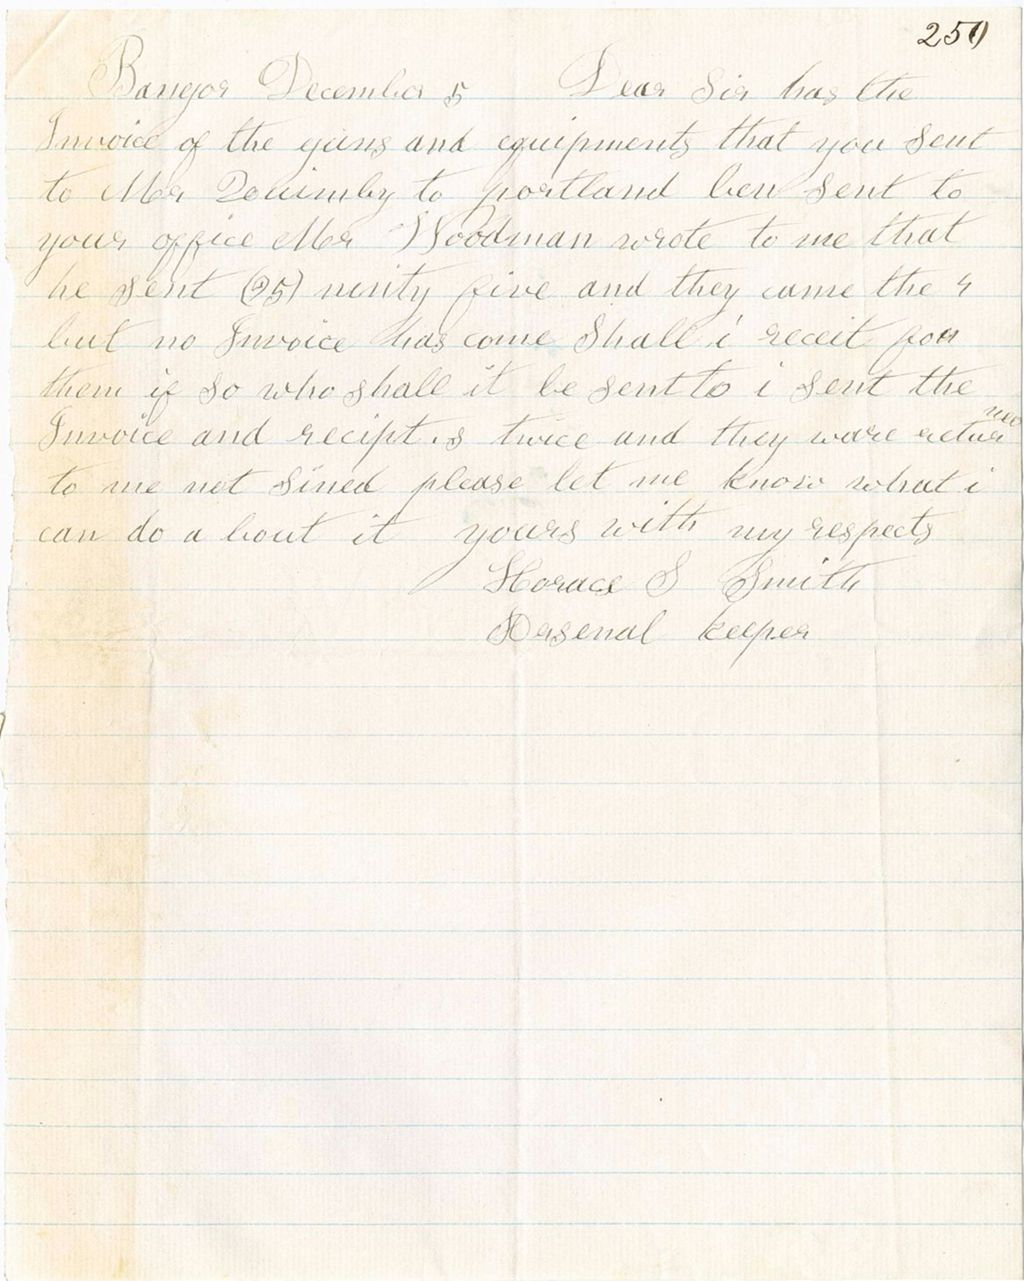 250
Bangor December 5 Dear Sir has the
Invoice of the guns and equipments that you sent
to Mr Qouimby to portland ben sent to
your office Mr Woodman wrote to me that
he sent (95) ninity five and they came the 4
but no Invoice has come Shall i receit for
them if so who shall it be sent to i sent the
Invoice and recipt.s twice and they ware
to me not sined please let me know what i
can do a bout it yours with my respects
Horace S Smith
Arsenal keeper